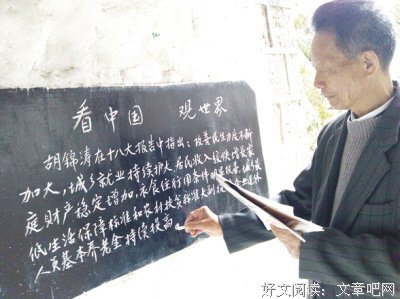 看中国 观世界
胡锦涛在十八大报告中指出：改善民生力度不断
加大，城乡就业持续扩大，居民收入较快增长家
庭财产稳定增加，衣食住行用条件明显改善，城乡最
低生活保障标准和农村扶贫标准大幅提升企业退休
人员基本养老金持续提高
好文阅读：文章吧网